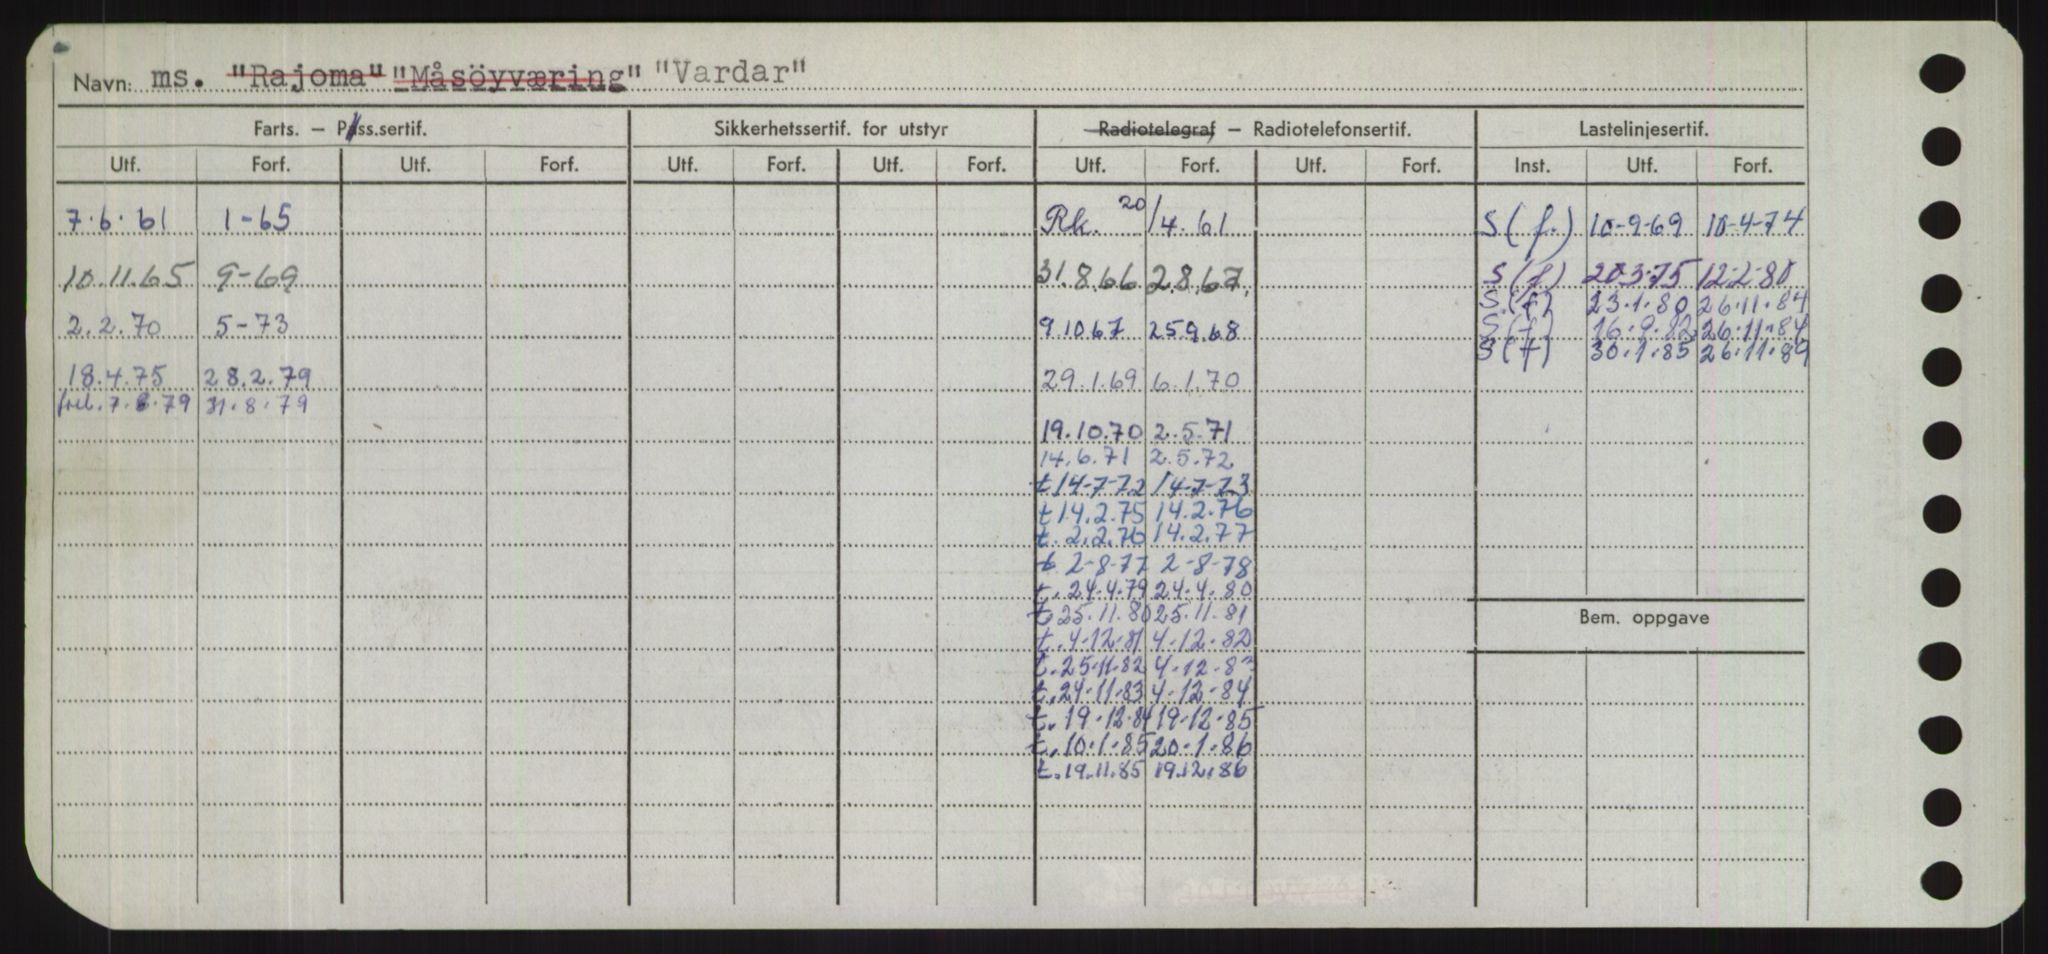 Navn: ms. "Rajoma" "Måsöyværing" "Vardar"
Farts. – Pass.sertif. Sikkerhetssertif. for utstyr Radiotelegraf – Radiotelefonsertif. Lastelinjesertif.
Utf. Forf. Utf. Forf. Utf. Forf. Utf. Forf. Utf. Forf. Utf. Forf. Inst. Utf. Forf.
7.6.61 1-65 Rk. 20/4.61 S (f.) 10-9-69 10-4-74
10.11.65 9-69 31.8.66 2.8.67. S (f) 20.3.75 12-2-80
S.(f) 23.1.80 26.11.84
2.2.70 5-73 9.10.67 25.9.68 S (f) 16.9.82 26.11.84
S (f) 30.1.85 26.11.89
18.4.75 28.2.79 29.1.69 6.1.70
forl. 7.8.79 31.8.79
19.10.70 2.5.71
14.6.71 2.5.72
t 14-7-72 14-7-73
t 14.2.75 14.2.76
t. 2.2.76 14.2.77
t 2-8-77 2-8-78
t. 24.4.79 24.4.80
t. 25.11.80 25.11.81
Bem. oppgave
t. 4-12-81 4-12-82
t. 25.11.82 4-12-83
t. 24.11.83 4-12-84
t. 19-12-84 19-12-85
t. 10.1.85 20.1.86
t. 19.11.85 19.12.86